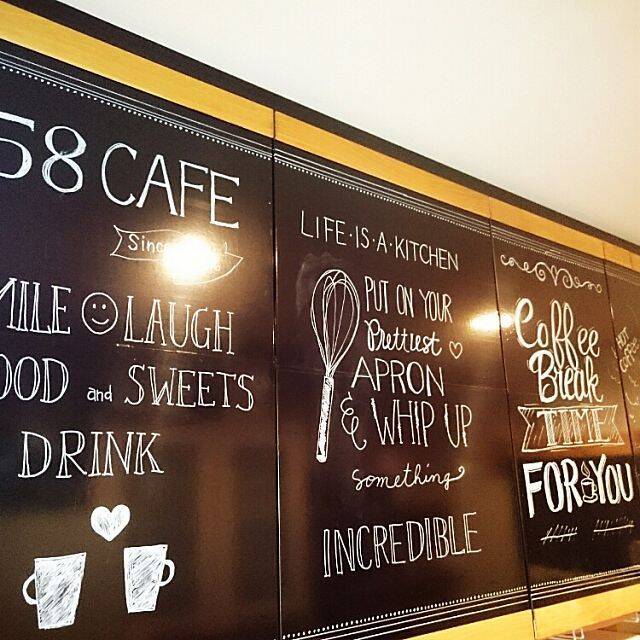 58 CAFE
Since
MILE ☺ LAUGH
OOD and SWEETS
DRINK
LIFE·IS·A·KITCHEN
PUT ON YOUR
Prettiest ♡
APRON
& WHIP UP
something
INCREDIBLE
Coffee
Break
TIME
FOR YOU
HOT